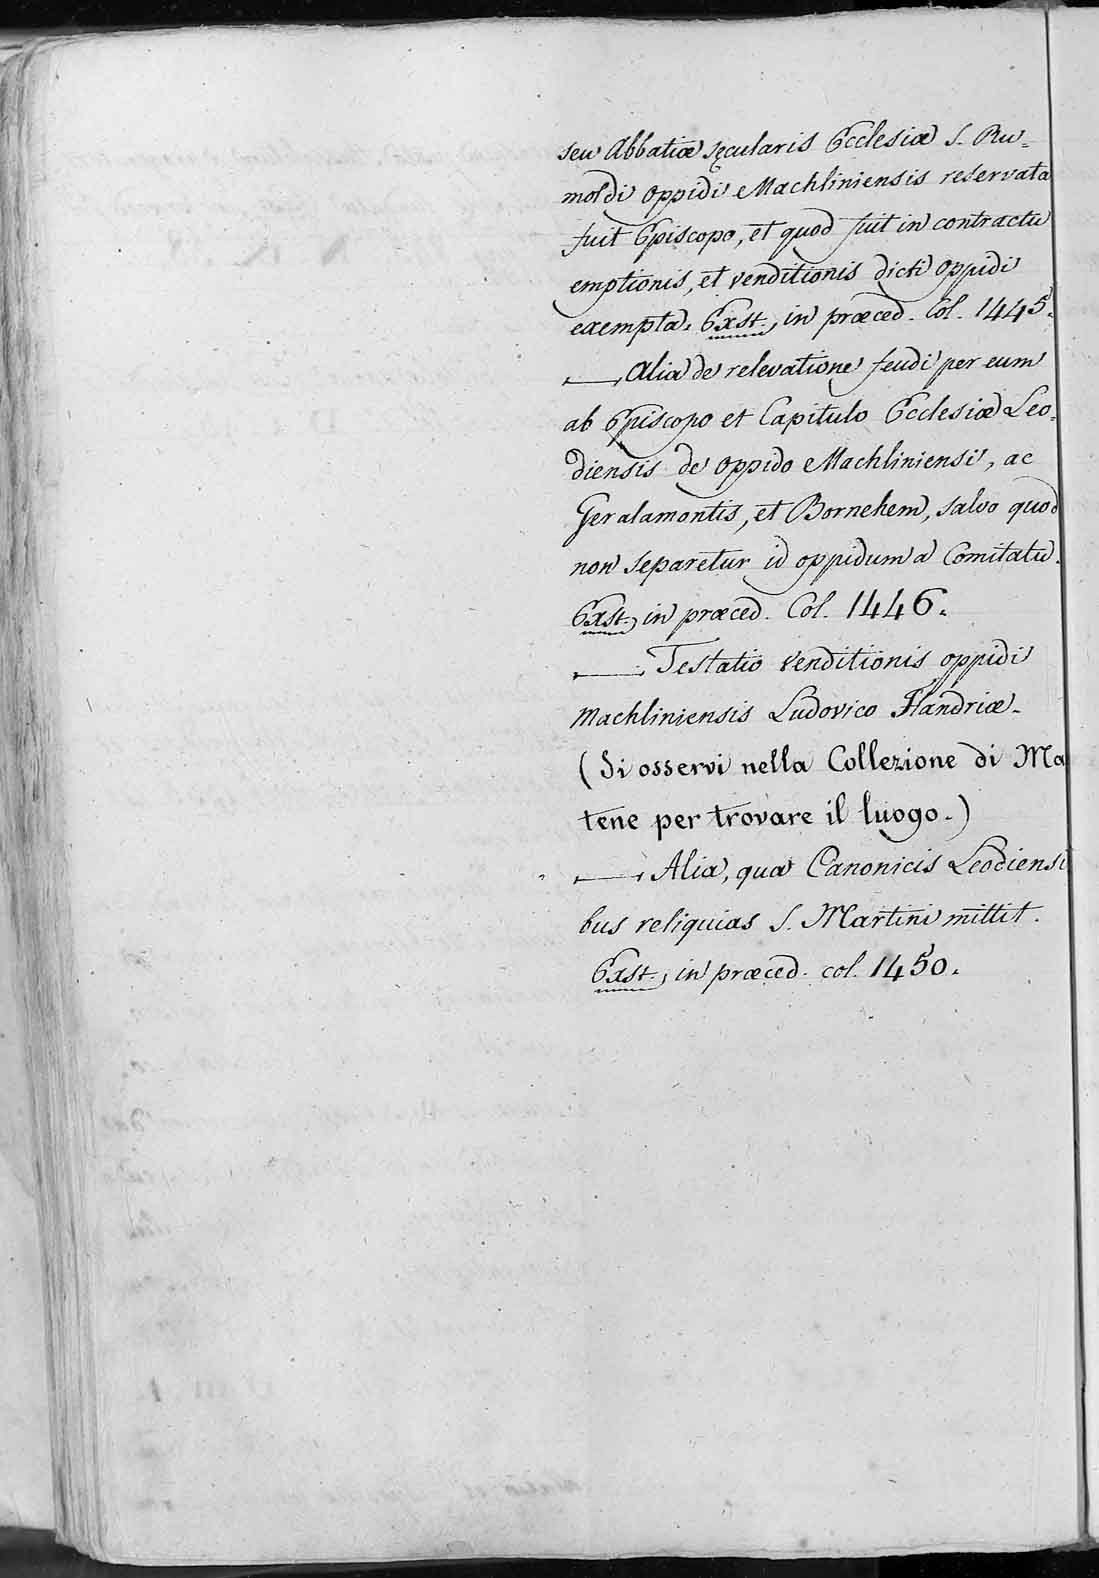 seu Abbatiæ sęcularis Ecclesiæ S. Ru=
moldi oppidi Machliniensis reservata
fuit Episcopo, et quod fuit in contractu
emptionis, et venditionis dicti oppidi
exempta. Exst. in præced. Col. 1445.
——— Alia de relevatione feudi per eum
ab Episcopo et Capitulo Ecclesiæ Leo=
diensis de oppido Machliniensi, ac
Geralamontis, et Bornehem, salvo quod
non separetur id oppidum a Comitatu.
Exst. in præced. Col. 1446.
——— Testatio venditionis oppidi
Machliniensis Ludovico Flandriæ.
(Si osservi nella Collezione di Ma
tene per trovare il luogo.)
——— Alia, qua Canonicis Leodiensi
bus reliquias S. Martini mittit.
Exst. in præced. col. 1450.